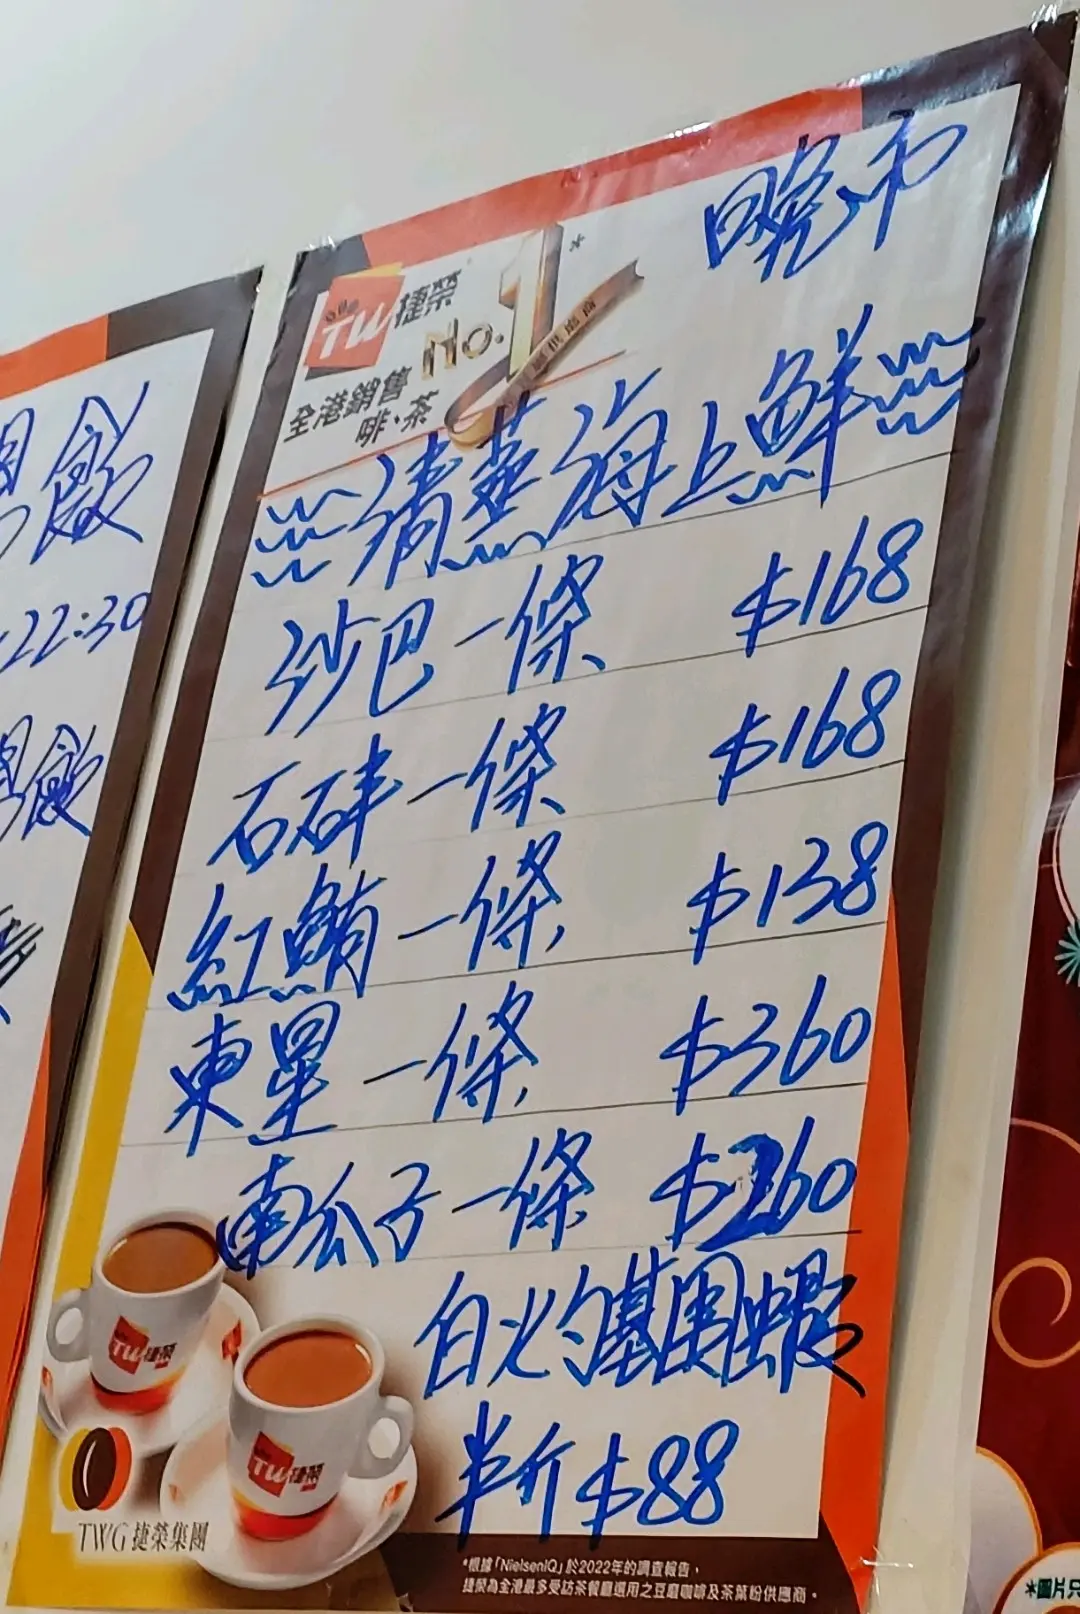 晚市
TW 捷榮
No.1*
全港銷售
啡、茶
清蒸海上鮮
沙巴一條 $168
石砗一條 $168
紅鮋一條 $138
東星一條 $360
南瓜子一條 $260
白灼基围虾
半价 $88
TW 捷榮
TW 捷榮
TWG 捷榮集團
*根據「NielsenIQ」於2022年的調查報告，
捷榮為全港最多受訪茶餐廳選用之豆磨咖啡及茶葉粉供應商。
22:30
*圖片只